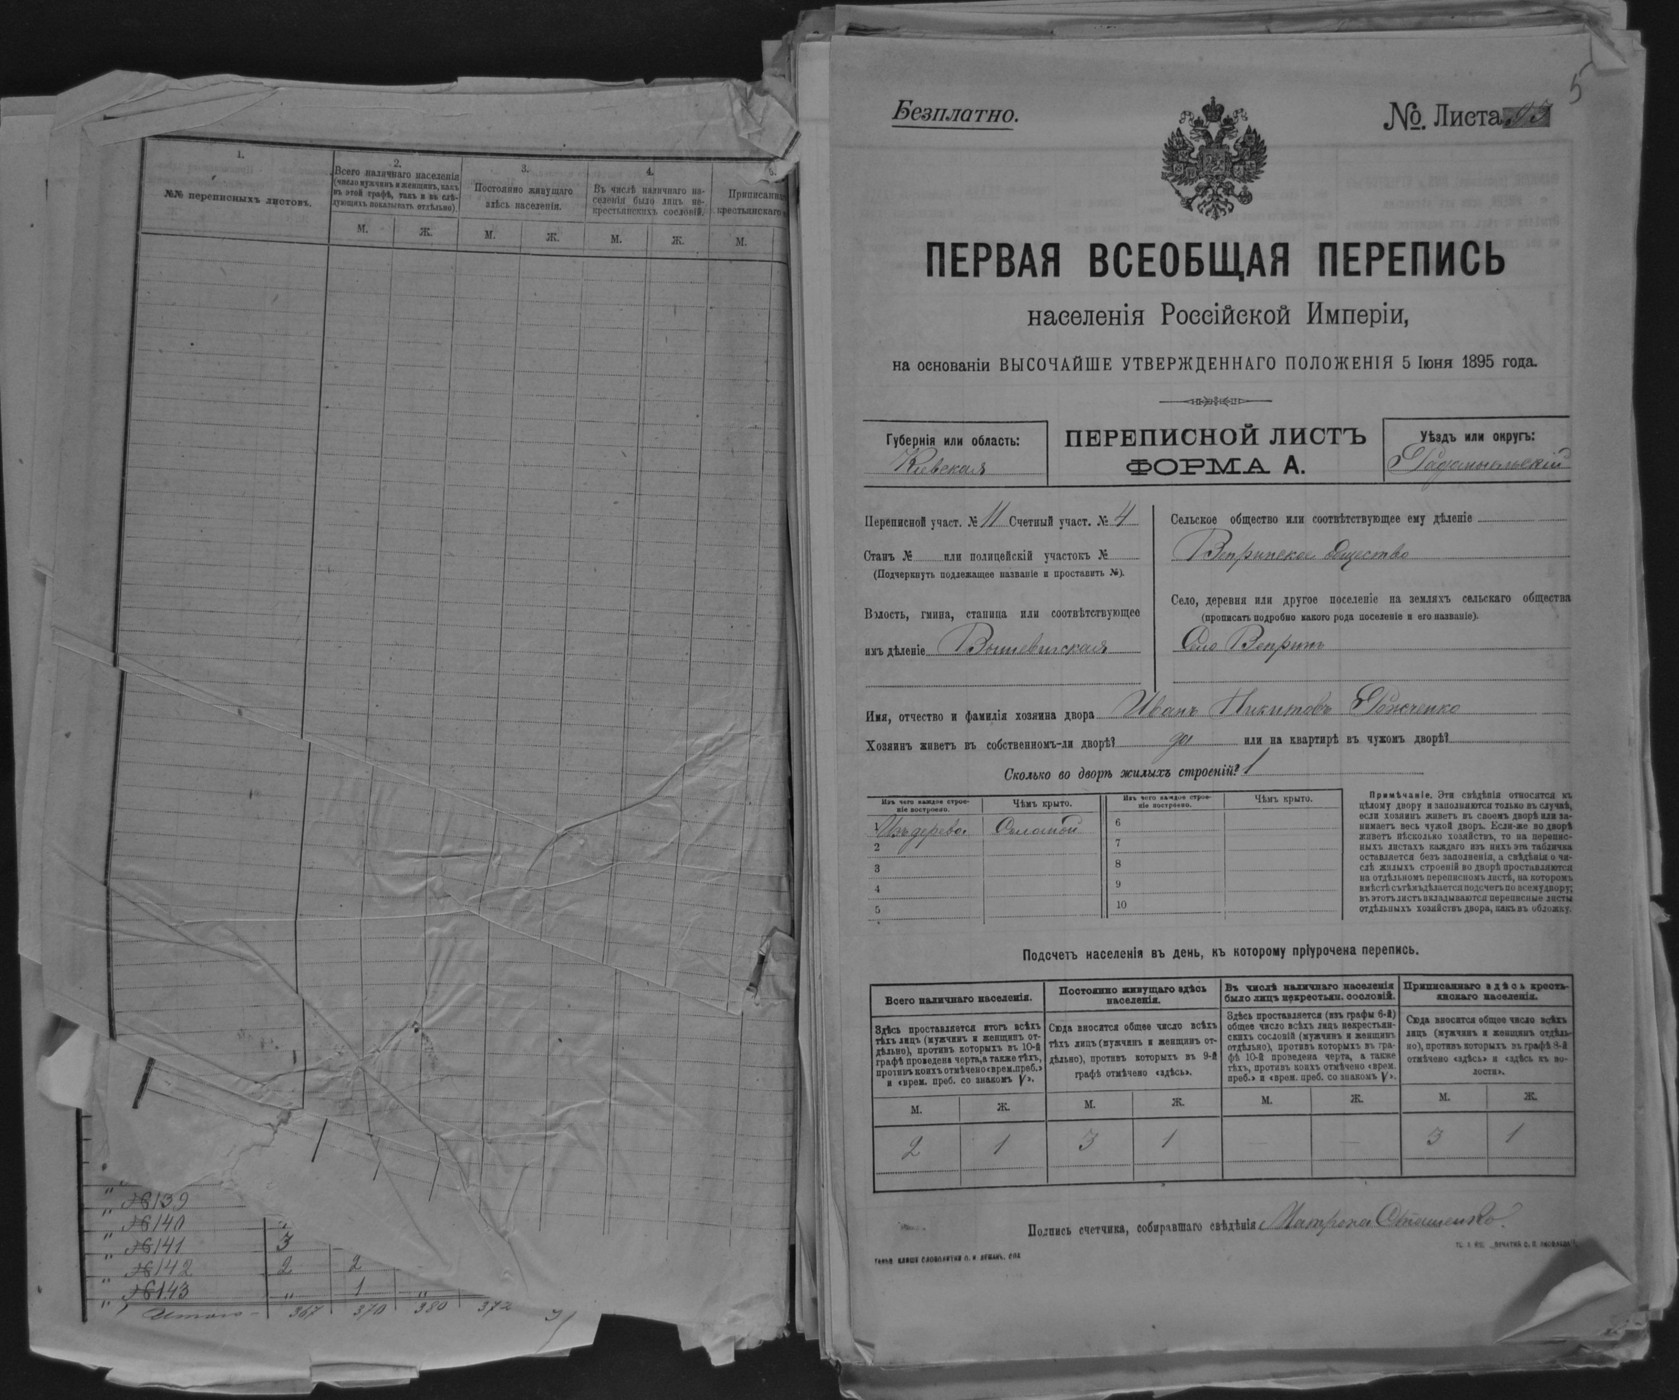 1.
2.
3.
4.
5.
№№ переписныхъ листовъ.
Всего наличнаго населенія
(число мужчинъ и женщинъ, какъ
въ этой графѣ, такъ и въ слѣ-
дующихъ показывать отдѣльно)
Постоянно живущаго
здѣсь населенія.
Въ числѣ наличнаго на-
селенія было лицъ не-
крестьянскихъ сословій.
М.
Ж.
М.
Ж.
М.
Ж.
М.
" 139
" 140
" 141 3
" 142 2 2
" 143 " 1 "
Итого 367 370 380 372
5
Безплатно.
№. Листа
ПЕРВАЯ ВСЕОБЩАЯ ПЕРЕПИСЬ
населенія Россійской Имперіи,
на основаніи ВЫСОЧАЙШЕ УТВЕРЖДЕННАГО ПОЛОЖЕНІЯ 5 Іюня 1895 года.
Губернія или область:
Кіевская
ПЕРЕПИСНОЙ ЛИСТЪ
ФОРМА А.
Уѣздъ или округъ:
Радомысльскій
Переписной участ. № 11 Счетный участ. № 4
Станъ № или полицейскій участокъ №
(Подчеркнуть подлежащее названіе и проставить №).
Волость, гмина, станица или соотвѣтствующее
имъ дѣленіе Вышевичская
Сельское общество или соотвѣтствующее ему дѣленіе
Вепринское общество
Село, деревня или другое поселеніе на земляхъ сельскаго общества
(прописать подробно какого рода поселеніе и его названіе).
Село Вепринъ
Имя, отчество и фамилія хозяина двора Иванъ Никитовъ
Хозяинъ живетъ въ собственномъ-ли дворѣ? да или на квартирѣ въ чужомъ дворѣ?
Сколько во дворѣ жилыхъ строеній? 1
Изъ чего каждое строе-
ніе построено.
Чѣмъ крыто.
Изъ чего каждое строе-
ніе построено.
Чѣмъ крыто.
1 Изъ дерева Соломой
2
3
4
5
6
7
8
9
10
Примѣчаніе. Эти свѣдѣнія относятся къ
цѣлому двору и заполняются только въ случаѣ,
если хозяинъ живетъ въ своемъ дворѣ или за-
нимаетъ весь чужой дворъ. Если-же во дворѣ
живетъ нѣсколько хозяйствъ, то на перепис-
ныхъ листахъ каждаго изъ нихъ эта табличка
оставляется безъ заполненія, а свѣдѣнія о чи-
слѣ жилыхъ строеній во дворѣ проставляются
на отдѣльномъ переписномъ листѣ, на которомъ
вмѣстѣ съ тѣмъ дѣлается подсчетъ по всему двору;
въ этотъ листъ вкладываются переписные листы
отдѣльныхъ хозяйствъ двора, какъ въ обложку.
Подсчетъ населенія въ день, къ которому пріурочена перепись.
Всего наличнаго населенія.
Здѣсь проставляется итогъ всѣхъ
тѣхъ лицъ (мужчинъ и женщинъ от-
дѣльно), противъ которыхъ въ 10-й
графѣ проведена черта, а также тѣхъ,
противъ коихъ отмѣчено «врем. преб.»
и «врем. преб. со знакомъ V».
Постоянно живущаго здѣсь
населенія.
Сюда вносится общее число всѣхъ
тѣхъ лицъ (мужчинъ и женщинъ от-
дѣльно), противъ которыхъ въ 9-й
графѣ отмѣчено «здѣсь».
Въ числѣ наличнаго населенія
было лицъ некрестьян. сословій.
Здѣсь проставляется (изъ графы 6-й)
общее число всѣхъ лицъ некрестьян-
скихъ сословій (мужчинъ и женщинъ
отдѣльно), противъ которыхъ въ гра-
фѣ 10-й проведена черта, а также
тѣхъ, противъ коихъ отмѣчено «врем.
преб.» и «врем. преб. со знакомъ V».
Приписаннаго здѣсь кресть-
янскаго населенія.
Сюда вносится общее число всѣхъ
лицъ (мужчинъ и женщинъ отдѣль-
но), противъ которыхъ въ графѣ 8-й
отмѣчено «здѣсь» и «здѣсь въ во-
лости».
М. Ж. М. Ж. М. Ж. М. Ж.
2 1 3 1 — — 3 1
Подпись счетчика, собиравшаго свѣдѣнія